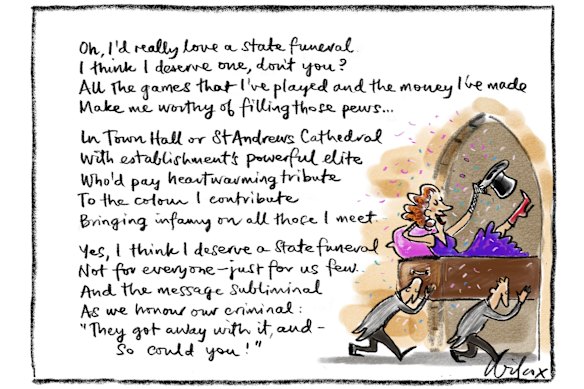 Oh, I'd really love a state funeral
I think I deserve one, don't you?
All the games that I've played and the money I've made
Make me worthy of filling those pews...
In Town Hall or St Andrews Cathedral
With establishment's powerful elite
Who'd pay heartwarming tribute
To the colour I contribute
Bringing infamy on all those I meet
Yes, I think I deserve a state funeral
Not for everyone - just for us few.
And the message subliminal
As we honour our criminal:
"They got away with it, and -
So could you!"
Wilcox